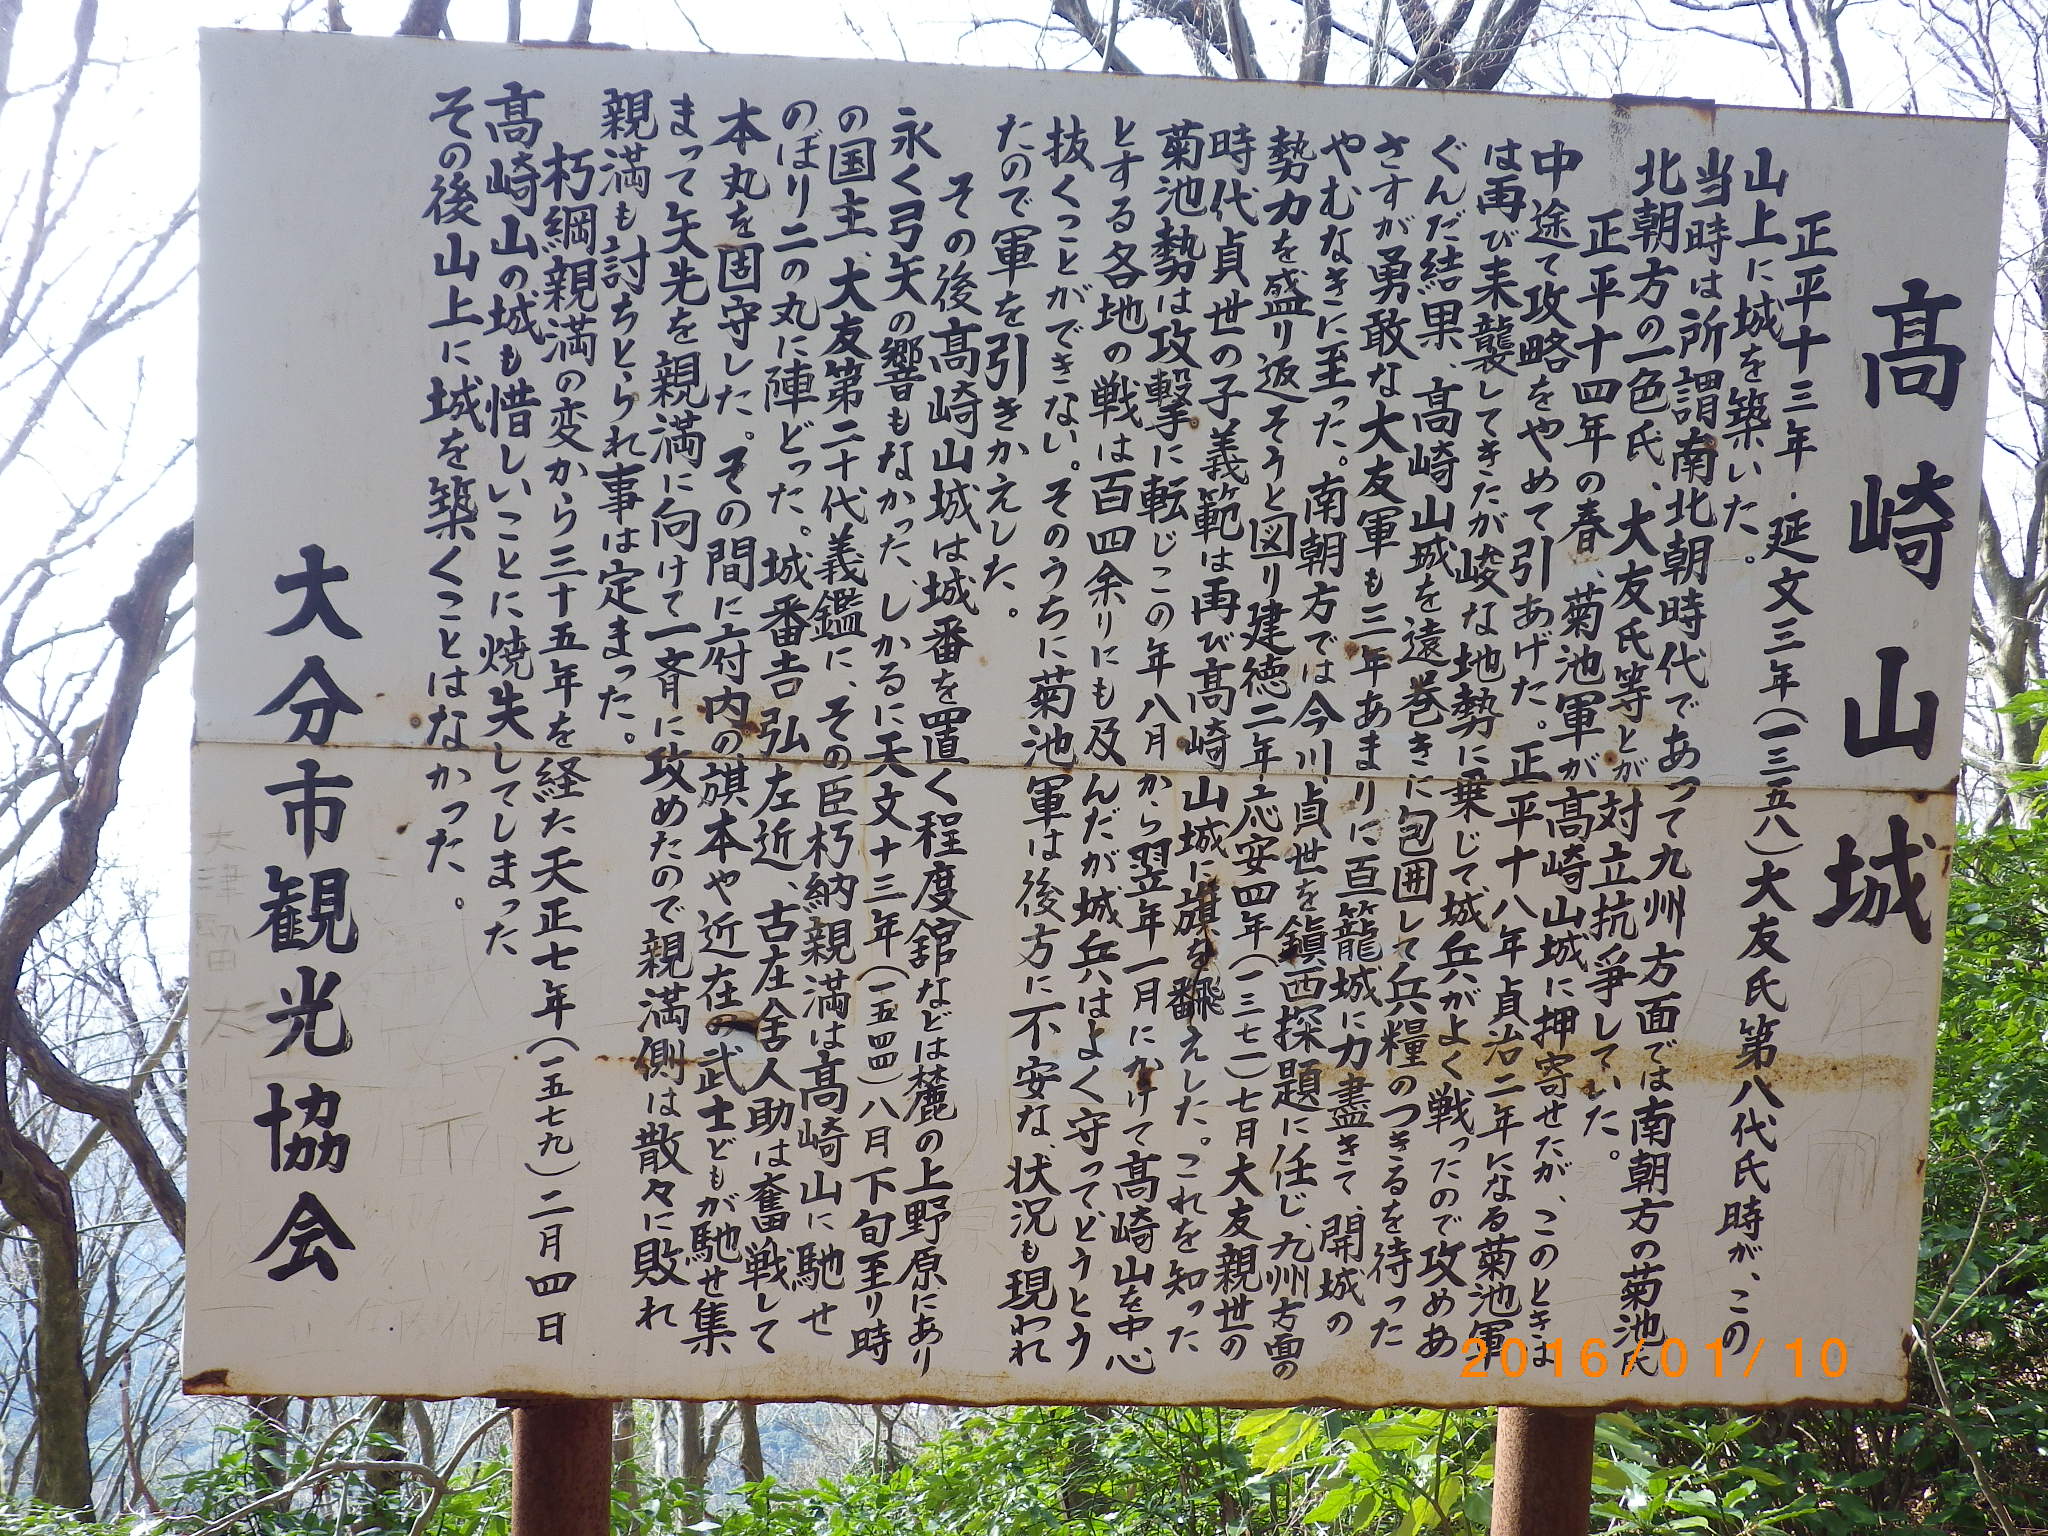 髙崎山城
正平十三年・延文三年(一三五八)大友氏第八代氏時が、この
山上に城を築いた。
当時は所謂南北朝時代であって九州方面では南朝方の菊池氏
北朝方の一色氏、大友氏等とが対立抗争していた。
正平十四年の春、菊池軍が髙崎山城に押寄せたが、このときは
中途で攻略をやめて引あげた。正平十八年貞治二年になる菊池軍
は再び来襲してきたが峻な地勢に乗じて城兵がよく戦ったので攻めあ
ぐんだ結果、髙崎山城を遠巻きに包囲して兵糧のつきるを待った
さすが勇敢な大友軍も三年あまりに亘籠城に力盡きて、開城の
やむなきに至った。南朝方では今川貞世を鎭西探題に任じ、九州方面の
勢力を盛り返そうと図り建徳二年応安四年(一三七一)七月大友親世の
時代貞世の子義範は再び髙崎山城に旗を飜えした。これを知った
菊池勢は攻撃に転じこの年八月から翌年一月にかけて髙崎山を中心
とする各地の戦は百四余りにも及んだが城兵はよく守ってどうとう
抜くことができない。そのうちに菊池軍は後方に不安な、状況も現われ
たので軍を引きかえした。
その後髙崎山城は城番を置く程度舘などは麓の上野原にあり
永く弓矢の響もなかった、しかるに天文十三年(一五四四)八月下旬至り時
の国主、大友第二十代義鑑に、その臣朽納親満は髙崎山に馳せ
のぼり二の丸に陣どった。城番吉弘左近、古庄舍人助は奮戦して
本丸を固守した。その間に府内の旗本や近在の武士どもが馳せ集
まって矢先を親満に向けて一斉に攻めたので親満側は散々に敗れ
親満も討ちとられ事は定まった。
朽綱親満の変から三十五年を経た天正七年(一五七九)二月四日
髙崎山の城も惜しいことに焼失してしまった
その後山上に城を築くことはなかった。
大分市観光協会
2016/01/10